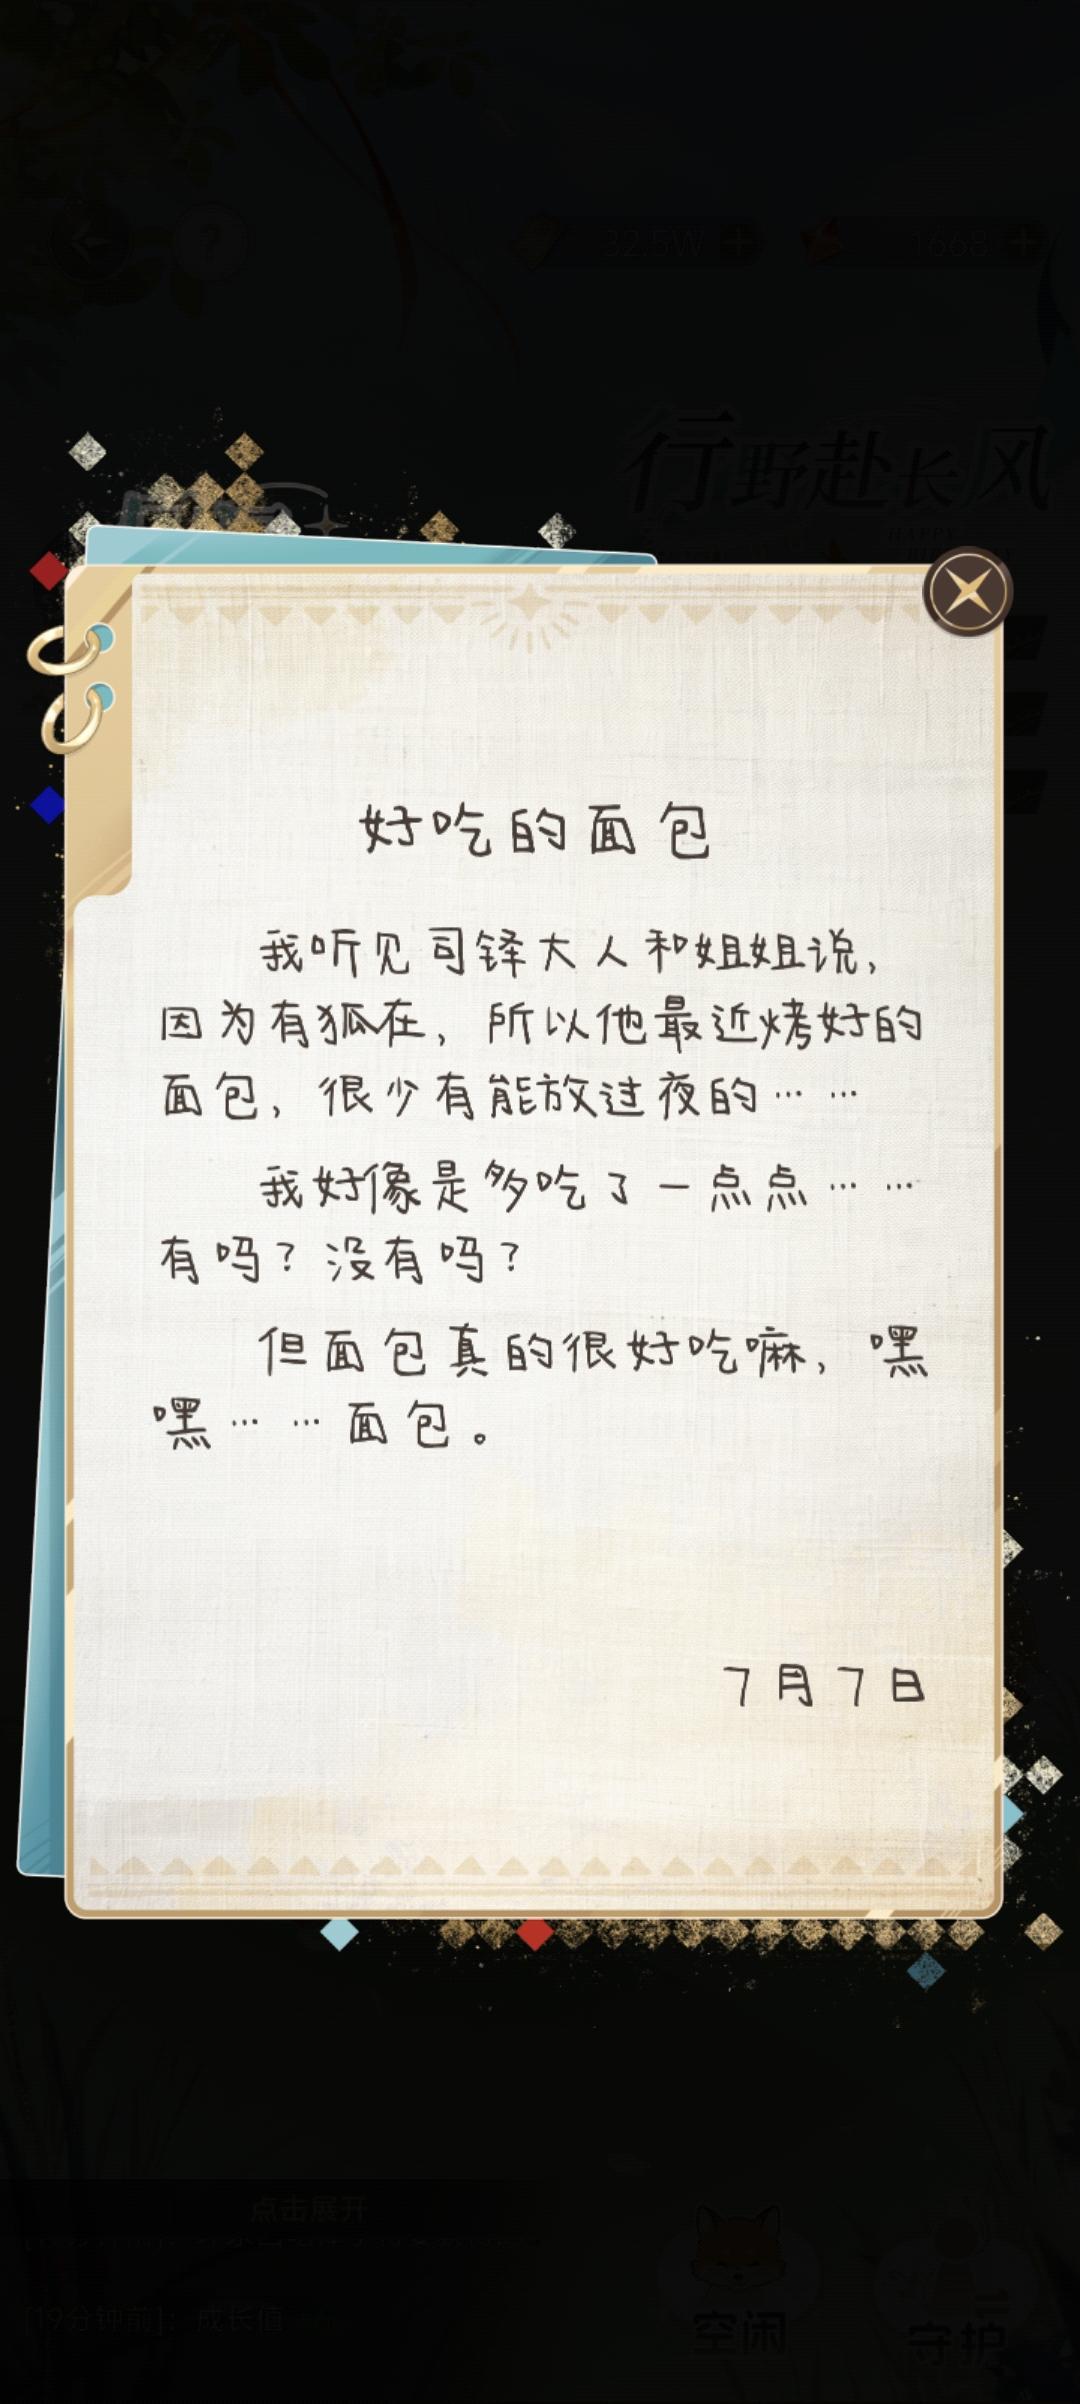 32.5W
1668
行野赴长风
HAPPY
好吃的面包
我听见司铎大人和姐姐说,
因为有狐在,所以他最近烤好的
面包,很少有能放过夜的……
我好像是多吃了一点点……
有吗?没有吗?
但面包真的很好吃嘛,嘿
嘿……面包。
7月7日
点击展开
[19分钟前]:成长值
空闲
守护